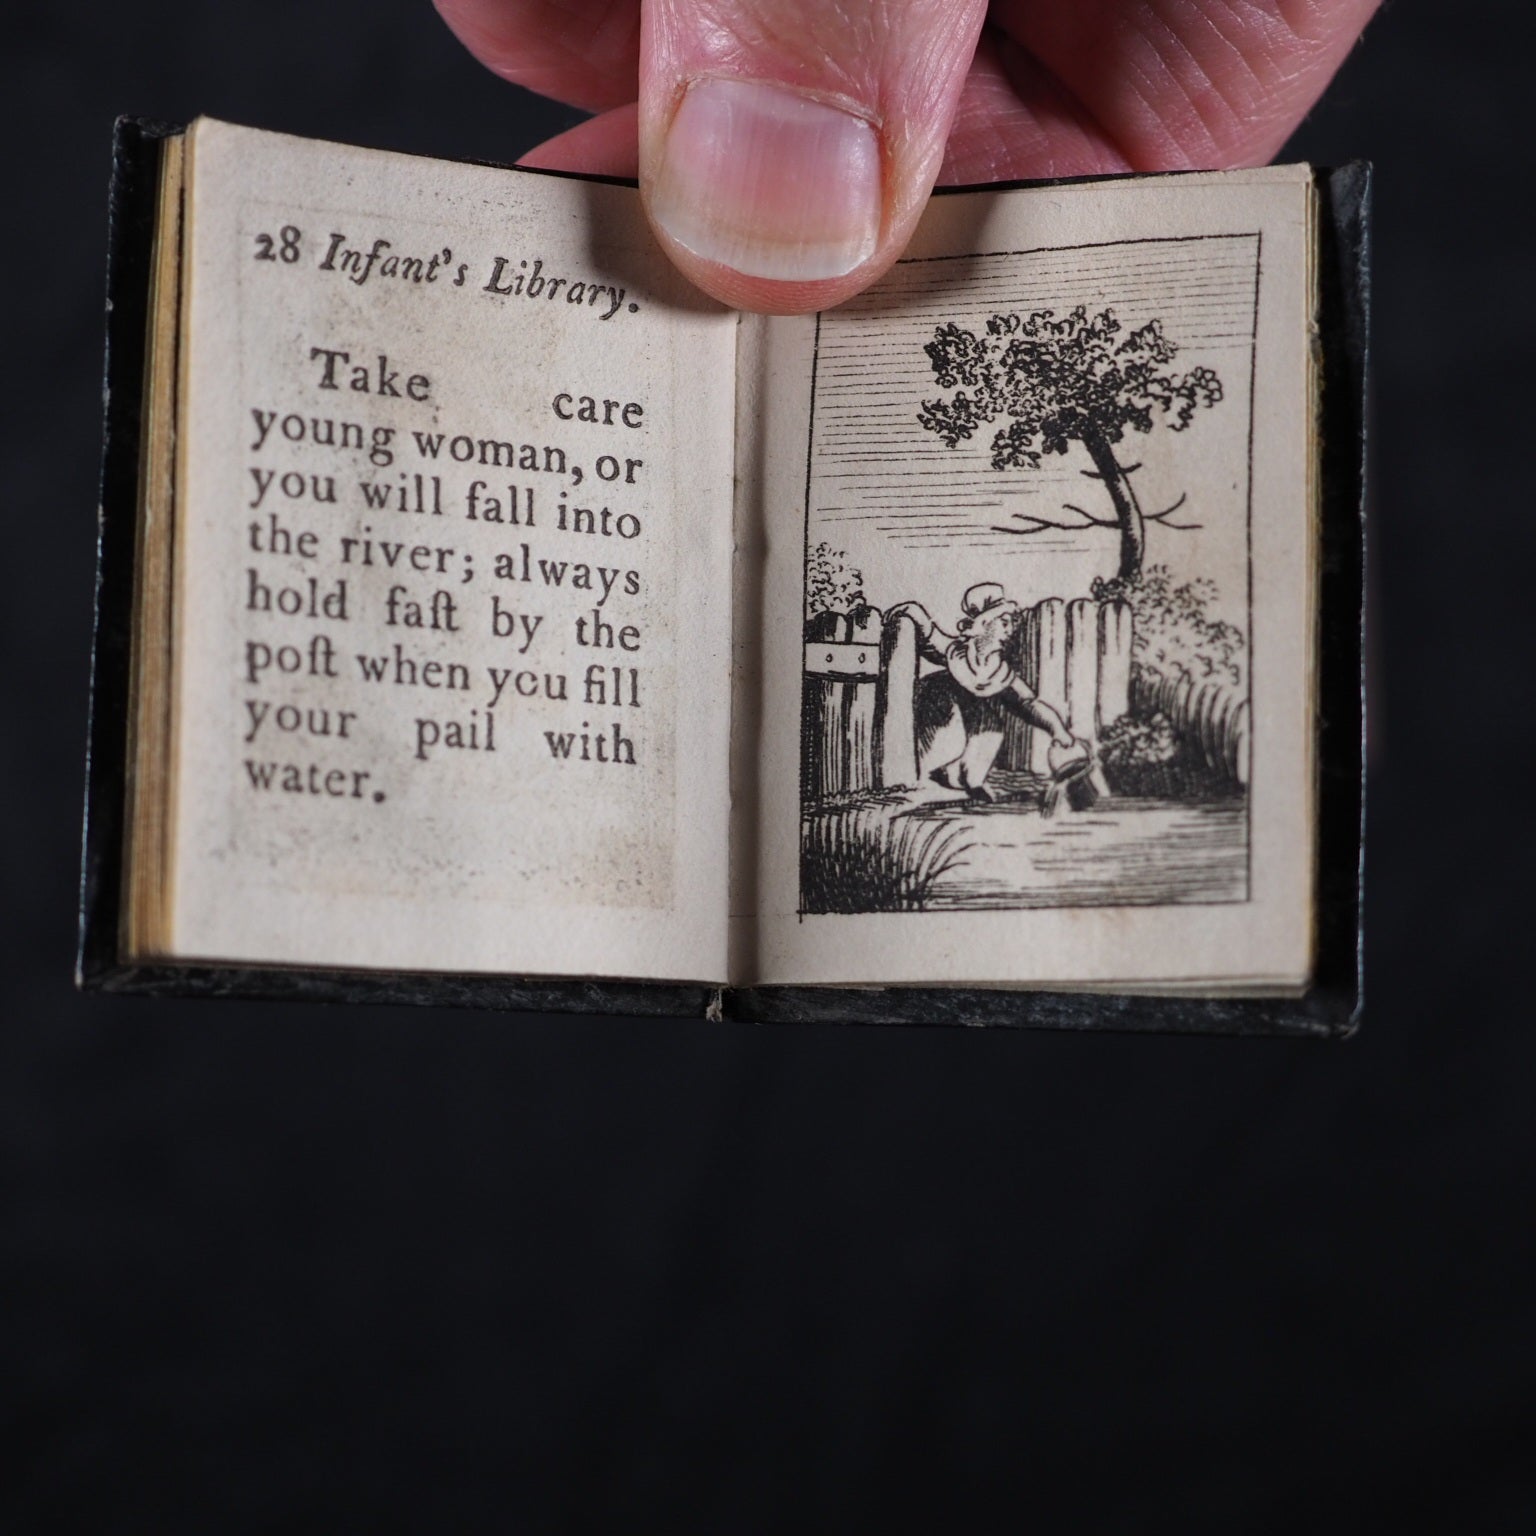 28 Infant's Library.
Take care
young woman, or
you will fall into
the river; always
hold faſt by the
poſt when you fill
your pail with
water.